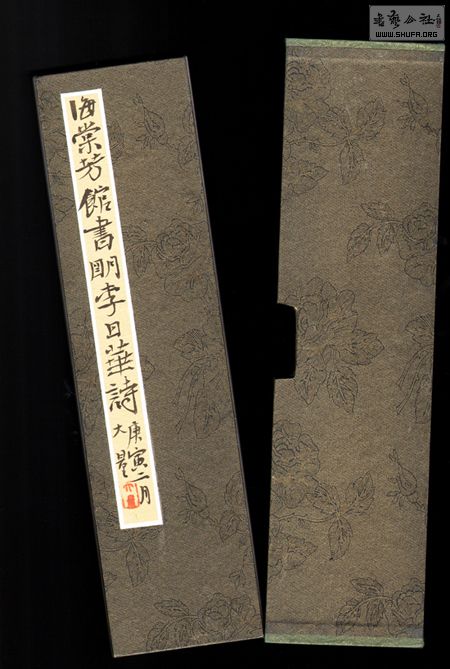 海棠芳館書明李日華詩
庚寅二月
大
書藝公社
WWW.SHUFA.ORG